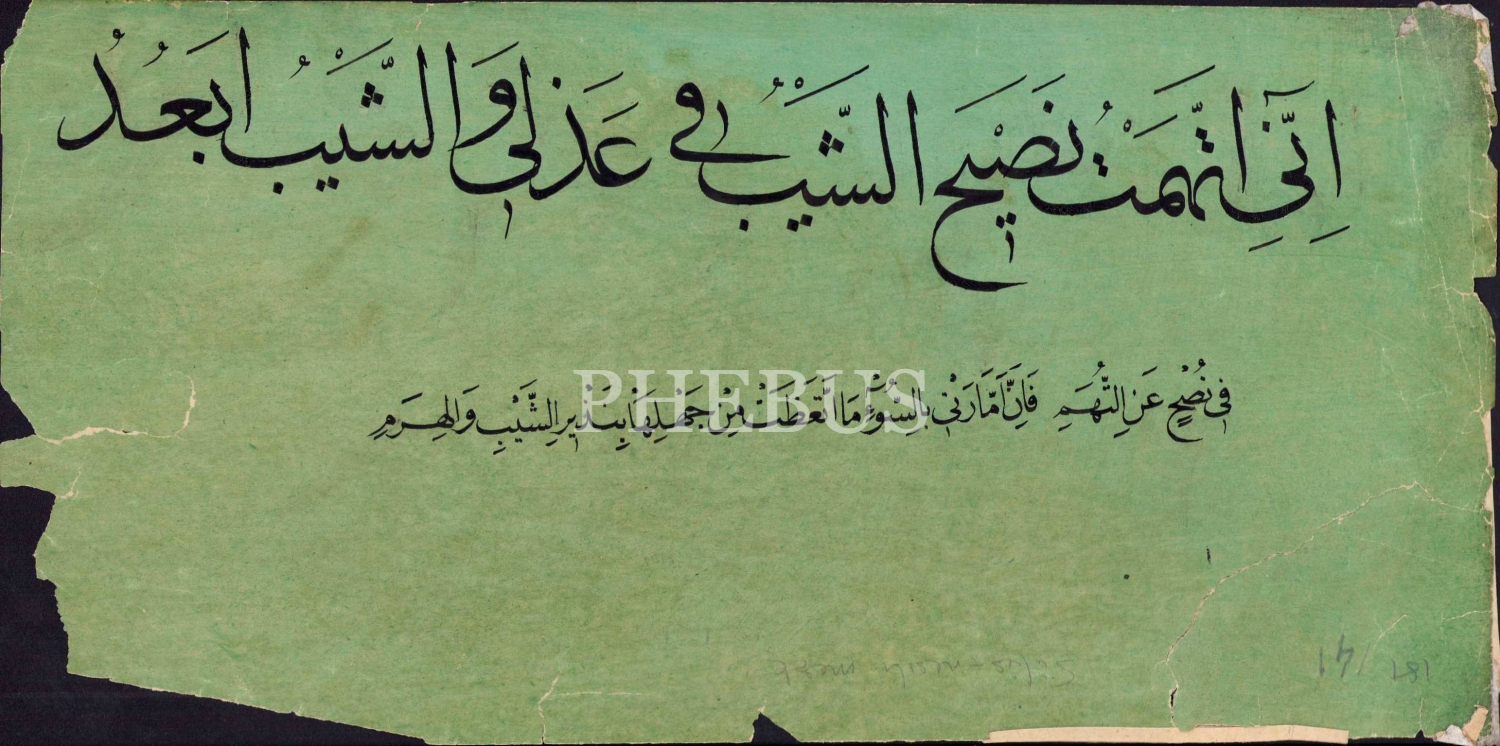 اِنّىِ اتَّهَمْتُ نَصٖيْحَ الشَّيْبُ فى عَذَلٖى وَالشَّيْبُ اَبْعَدُ
PHEBUS
فٖى نُصْحٍ عَنِ التُّهَمِ فَاِنَّ اَمَّارَتٖى بِالسُّوۤءِ مَا اتَّعَظَتْ مِنْ جَهْلِهَا بِنَذٖيرِ الشَّيْبِ وَالْهِرَمِ